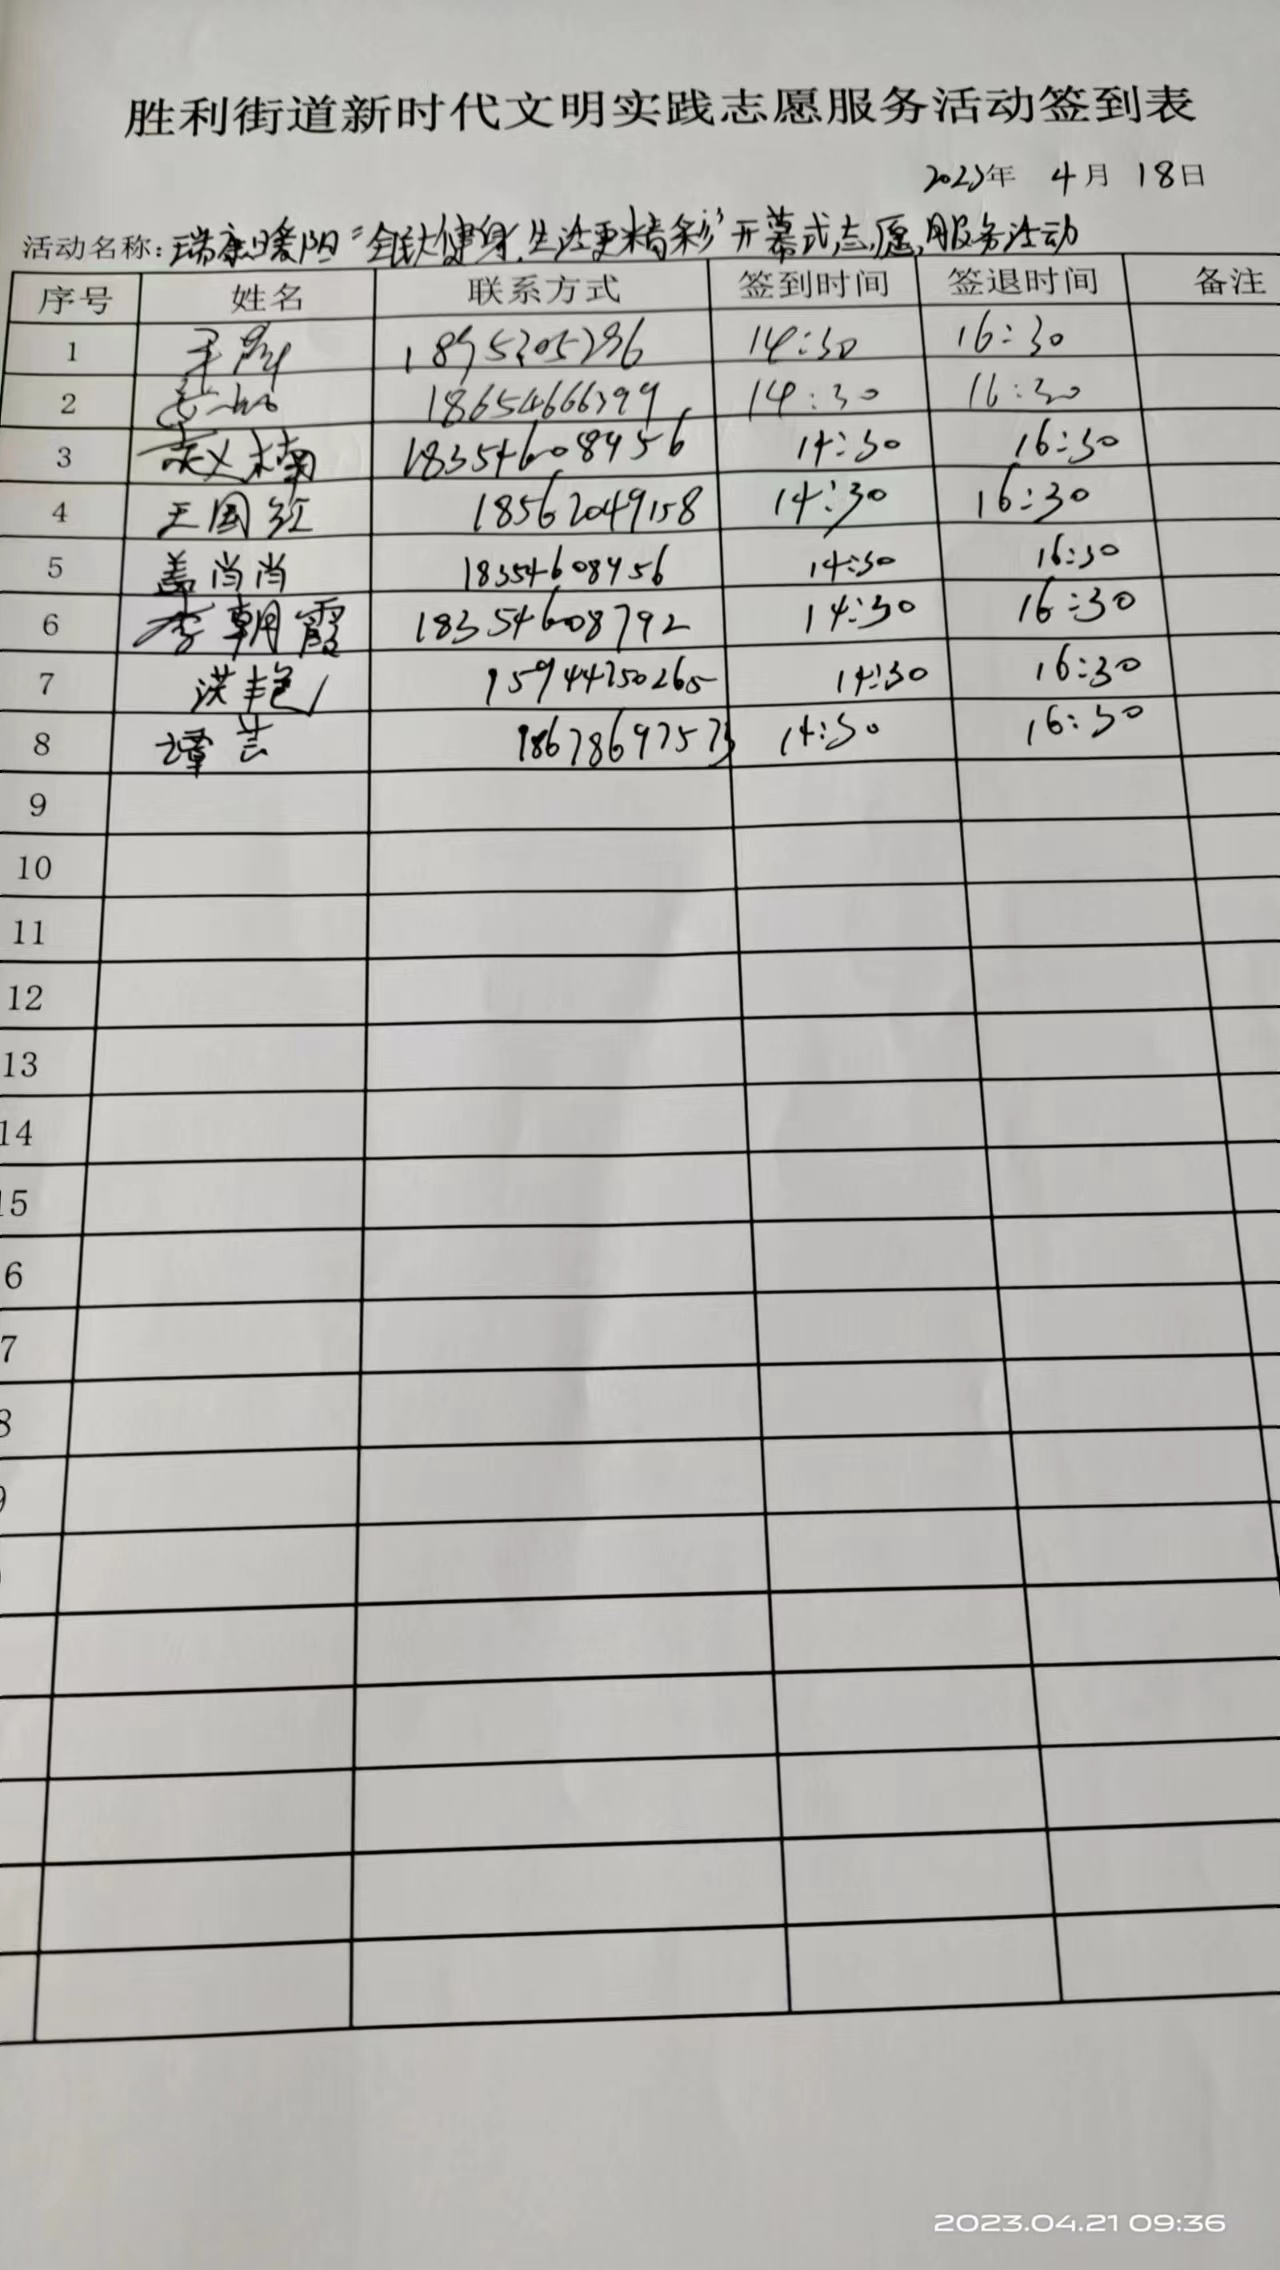 胜利街道新时代文明实践志愿服务活动签到表
2023年 4月 18日
活动名称:瑞康暖阳“全民大健身,生活更精彩”开幕式志愿服务活动
序号 姓名 联系方式 签到时间 签退时间 备注
1 14:30 16:30
2 18654666399 14:30 16:30
3 18354608456 14:30 16:30
4 王国红 18562049158 14:30 16:30
5 盖尚尚 18354608456 14:30 16:30
6 李朝霞 18354608792 14:30 16:30
7 洪艳 15944750265 14:30 16:30
8 谭芸 18678697573 14:30 16:30
9
10
11
12
13
14
15
6
7
8
9
2023.04.21 09:36